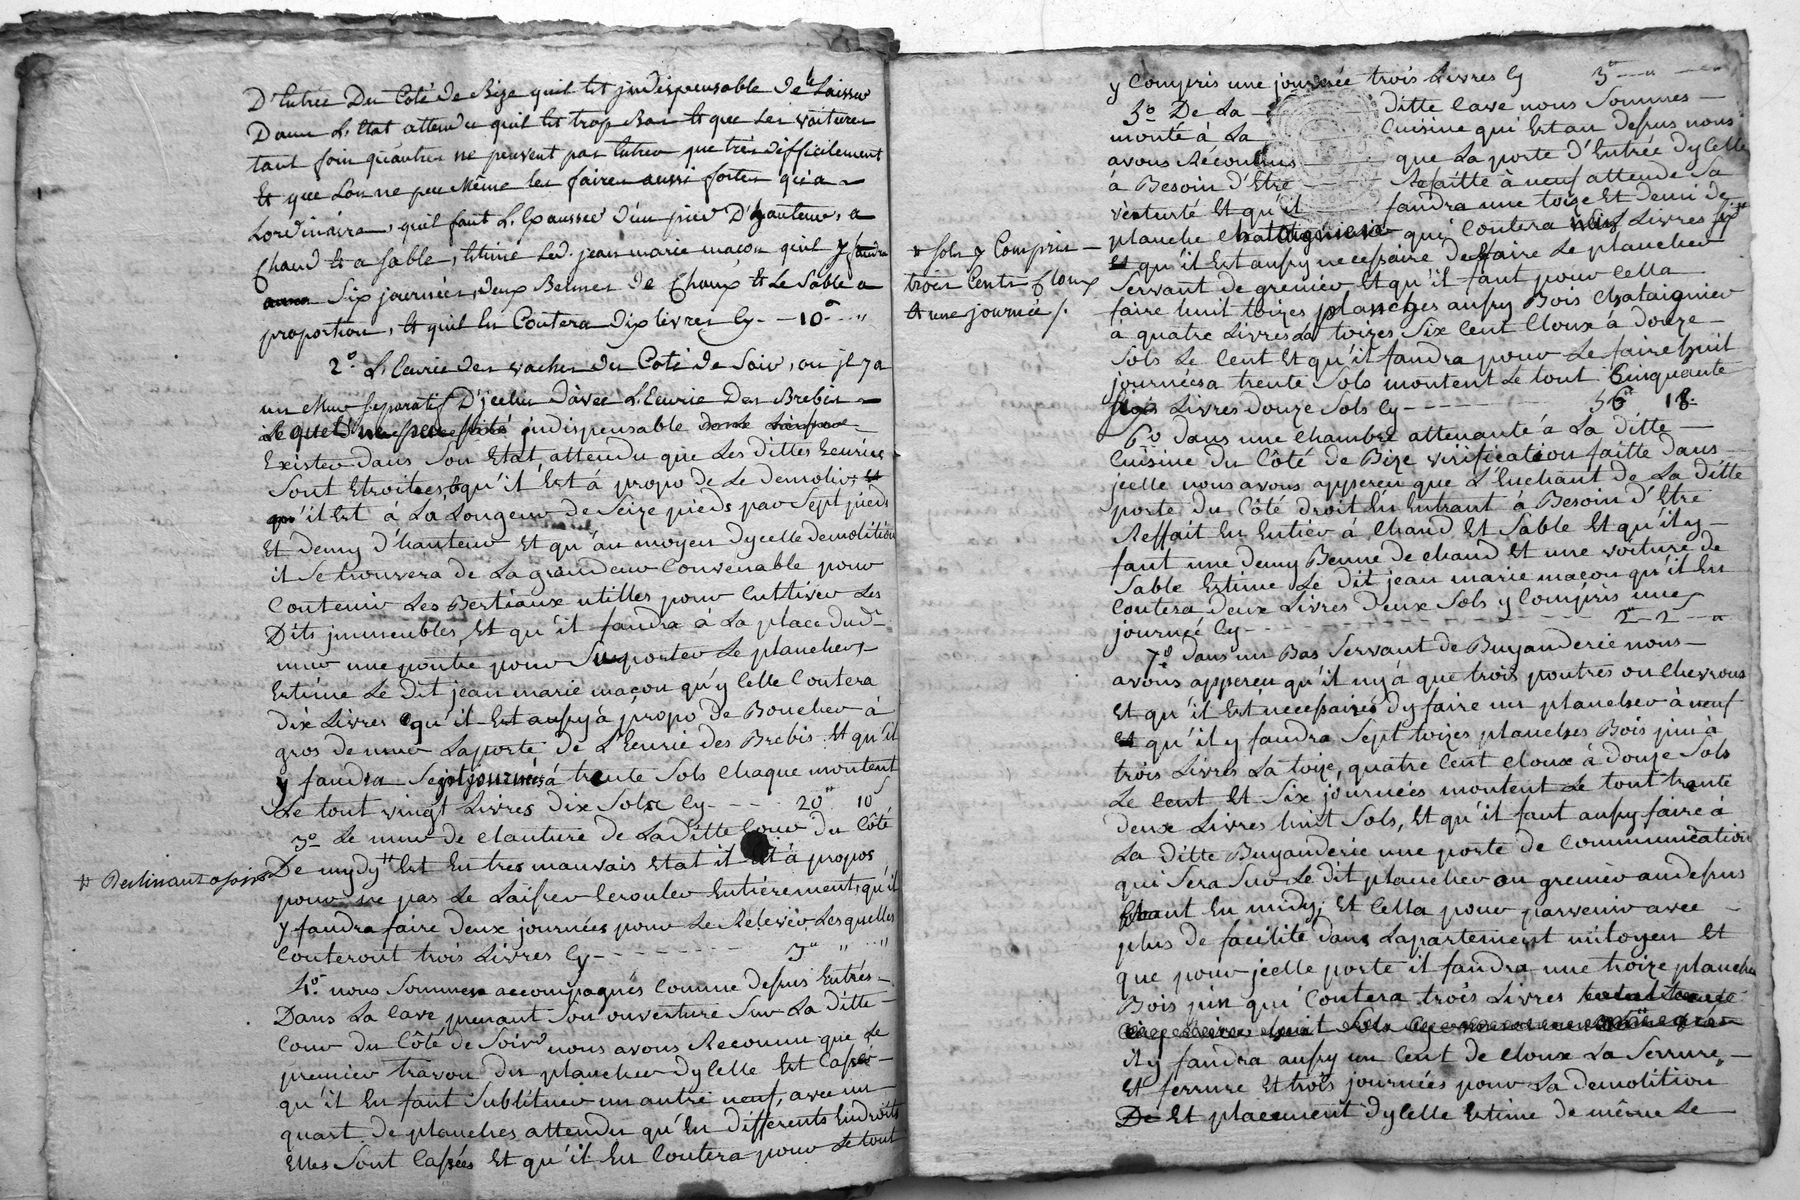 D'Entrée Du Coté de Bize quil Est jndispensable de Laisser
Dans L'Etat attendu quil Est trop Bas Et que Les voitures
tant foin qu'autres ne peuvent pas Entrer que très difficilement
Et que Lon ne peu Même les faire aussi fortes qu'a
Lordinaire, quil faut L'Exaussee d'un pied D'hauteur, a
Chaud Et a Sable, Estime Led. jean marie maçon quil y faudra
Six journées, deux Bennes de Chaux Et Le Sable a
proportion, Et quil En Coutera dix Livres Cy - - 10 " "
2° L'Ecurie des vaches du Coté de Soir, ou jl y a
un Mur Separatif D'jcelles D'avec L'Ecurie Des Brebis
jndispensable
Exister dans Son Etat, attendu que Les dittes Ecuries
Sont Etroites, & qu'il Est à propo de Le demolir, Et
qu'il Est à La Longeur de Seize pieds par Sept pieds
Et demy d'hauteur Et qu'au moyen dycelle demolition
il Se trouvera de La grandeur Convenable pour
Contenir Les Bestiaux utilles pour Cultiver Les
Dits jmmeubles, Et qu'il faudra à La place dud.
mur une poutre pour Suporter Le plancher,
Estime Le dit jean marie maçon qu'y Celle Coutera
dix Livres & qu'il Est aussy à propo de Boucher à
gros de mur Laporte de L'Ecurie des Brebis Et qu'il
y faudra Sept journées à trente Sols Chaque montent
Le tout vingt Livres dix Sols Cy - - - 20" 10 s
3° Le mur de clauture de La Ditte Cour du Côté
De mydy Est En tres mauvais Etat il Est à propos
* Declinant a soir
pour ne pas Le Laisser Ecrouler Entiérement, qu'il
y faudra faire deux journées pour Le Relever, Lesquelles
Couteront trois Livres Cy - - - - - - 3" " "
4° nous Sommes accompagnés Comme depuis Entrés
Dans La Cave prenant Son ouverture Sur La ditte
Cour du Côté de Soir nous avons Reconnu que Le
premier travon du plancher dycelle Est Cassé
qu'il En faut Subsituer un autre neuf, avec un
quart de planches attendu qu'En differents Endroits
Elles Sont Cassées Et qu'il En Coutera pour Le tout
y Compris une journée trois Livres Cy 3" " "
5° De La ditte Cave nous Sommes
monté à La Cuisine qui Est au depus nous
avons Réconnus que La porte d'Entrée dycelle
à Besoin d'Etre Refaitte à neuf attendu Sa
vetusté Et qu'il faudra une toize Et demi de
planche Chataignier qui Coutera Livres
* Sols y Compris
trois Cents Cloux
Et une journée /.
Et qu'il Est aussy necessaire de faire Le plancher
Servant de grenier Et qu'il faut pour Cella
faire huit toizes planches aussy Bois Chataignier
à quatre Livres La toizes Six Cent Cloux à douze
Sols Le Cent Et qu'il faudra pour Le faire huit
journées a trente Sols montent Le tout Cinquante
Livres douze Sols Cy - - - - 56" 18
6° dans une Chambre attenante à La ditte
Cuisine du Côté de Bize vérification faitte dans
jcelle nous avons apperçu que L'Enchant de La ditte
porte du Côté droit En Entrant à Besoin d'Etre
Reffait En Entiér à Chaud Et Sable Et qu'il y
faut une demy Benne de chaud Et une voiture de
Sable Estime Le dit jean marie maçon qu'il En
Coutera deux Livres deux Sols y Compris une
journée Cy - - - - - - - - - 2" 2 "
7° dans un Bas Servant de Buyanderie nous
avons apperçu qu'il ny à que trois poutres ou Chevrons
Et qu'il Est nécessaires d'y faire un plancher à neuf
Et qu'il y faudra Sept toizes planches Bois pin à
trois Livres La toize, quatre Cent cloux à douze Sols
Le Cent Et Six journées montent Le tout trente
deux Livres huit Sols, Et qu'il faut aussy faire à
La ditte Buyanderie une porte de Communication
qui Sera Sur Le dit plancher ou grenier au depus
Etant En midy, Et Cella pour parvenir avec
plus de facilité dans Lapartement mitoyen Et
que pour jcelle porte il faudra une toize planches
Bois pin qui Coutera trois Livres
il y faudra aussy un Cent de cloux La Serrure,
Et ferrure Et trois journées pour La demolition
De Et placement dycelle Estime de même Le